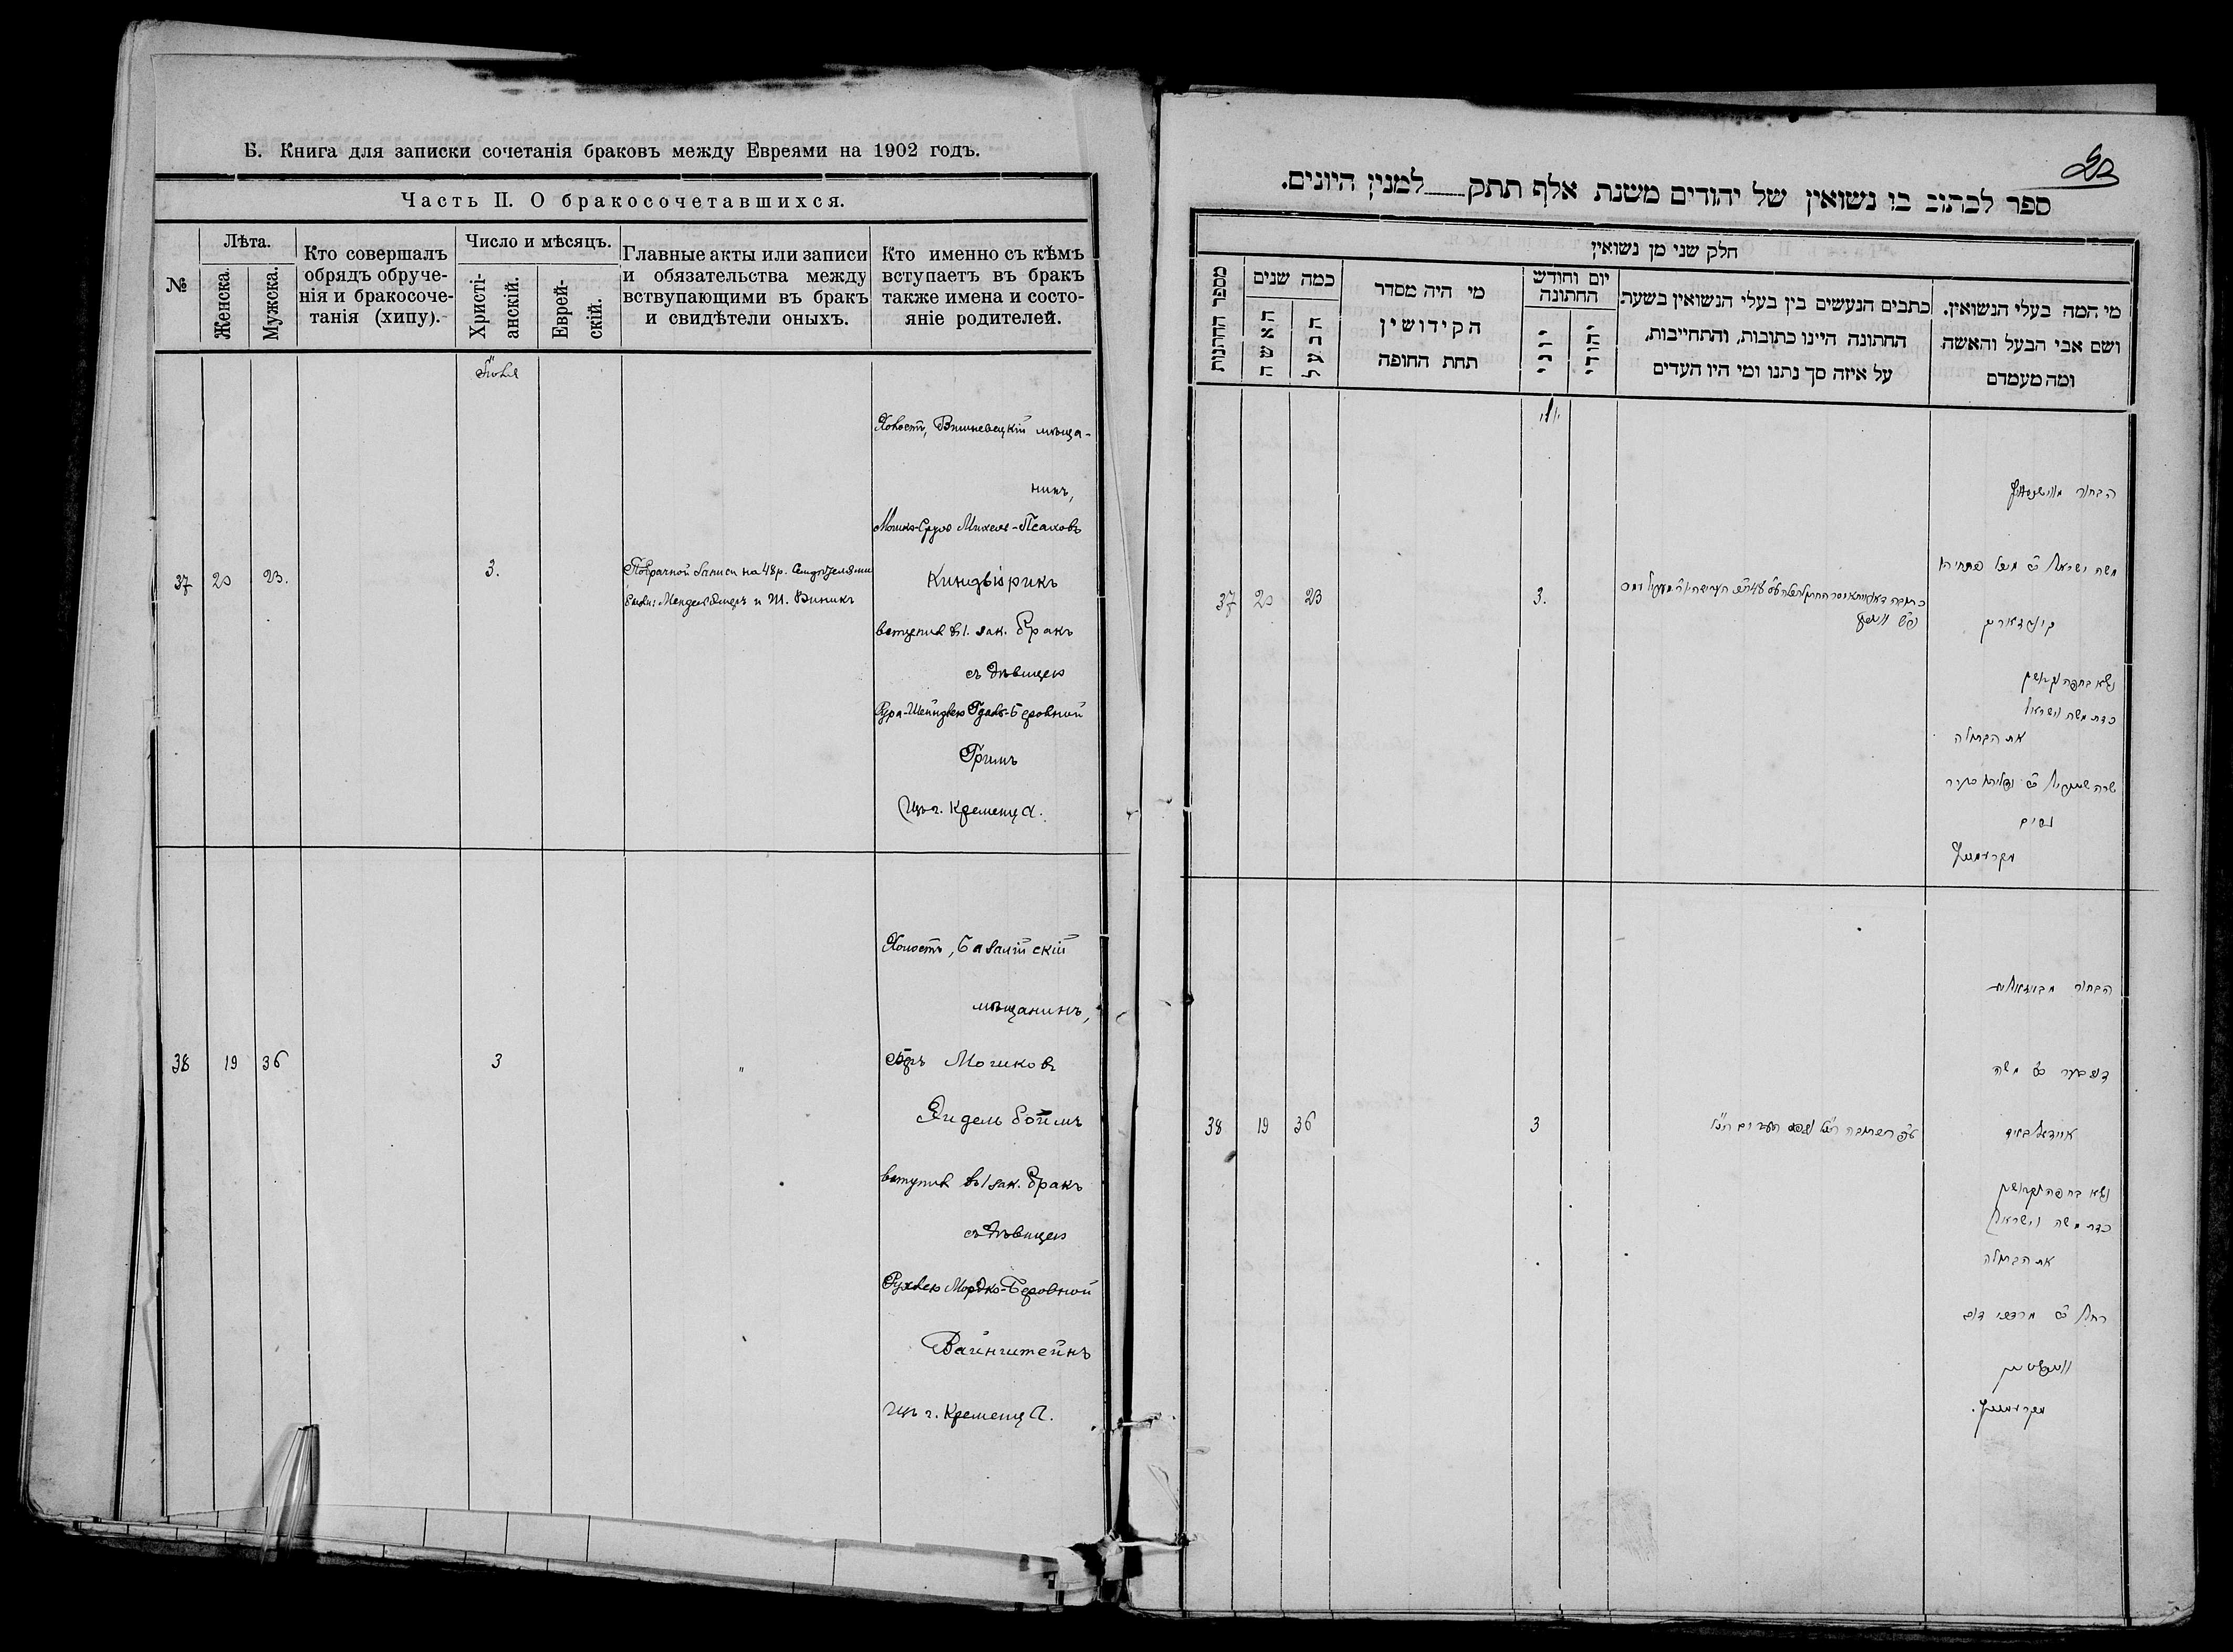 Б. Книга для записки сочетанія браковъ между Евреями на 1902 годъ.
Часть II. О бракосочетавшихся.
№
Лѣта.
Женска.
Мужска.
Кто совершалъ
обрядъ обруче-
нія и бракосоче-
танія (хипу).
Число и мѣсяцъ.
Христі-
анскій.
Еврей-
скій.
Главные акты или записи
и обязательства между
вствупающими въ бракъ
и свидѣтели оныхъ.
Кто именно съ кѣмъ
вступаетъ въ бракъ
также имена и состо-
яніе родителей.
Іюля
37
20
23.
3.
Побрачной записи на 48 р. Свидѣтелями
были: Мендель
Холостъ, Вишневецкій мѣща-
нинъ,
Мошко-Сруль Михель-Псаховъ
вступилъ в 1. зак. бракъ
съ дѣвицею
Сура-Шейндлею Гдаль-Беровной
Гринъ
изъ г. Кременца.
38
19
36
3
"
Холостъ, Базалійскій
мѣщанинъ,
Беръ Мошковъ
вступилъ въ 1 зак. бракъ
съ дѣвицею
Рухлею Мордко-Беровной
Вайнштейнъ
изъ г. Кременца.
ספר לכתוב בו נשואין של יהודים משנת אלף תתק למנין היונים.
חלק שני מן נשואין
מספר החתונות
כמה שנים
האשה
הבעל
מי היה מסדר
הקידושין
תחת החופה
יום וחודש
החתונה
יוני
יהודי
כתבים הנעשים בין בעלי הנשואין בשעת
החתונה היינו כתובות, והתחייבות,
על איזה סך נתנו ומי היו העדים
מי המה בעלי הנשואין.
ושם אבי הבעל והאשה
ומה מעמדם
יולי
37
20
23
3.
הבחור
משה ישראל
נשא בחפה וקדושין
כדת משה וישראל
את הבתולה
שרה שיינדיל
גרין
מקרעמניץ
38
19
36
3
הבחור
משה
נשא בחפה וקדושין
כדת משה וישראל
את הבתולה
רחל מרדכי דוב
וויינשטיין
מקרעמניץ.